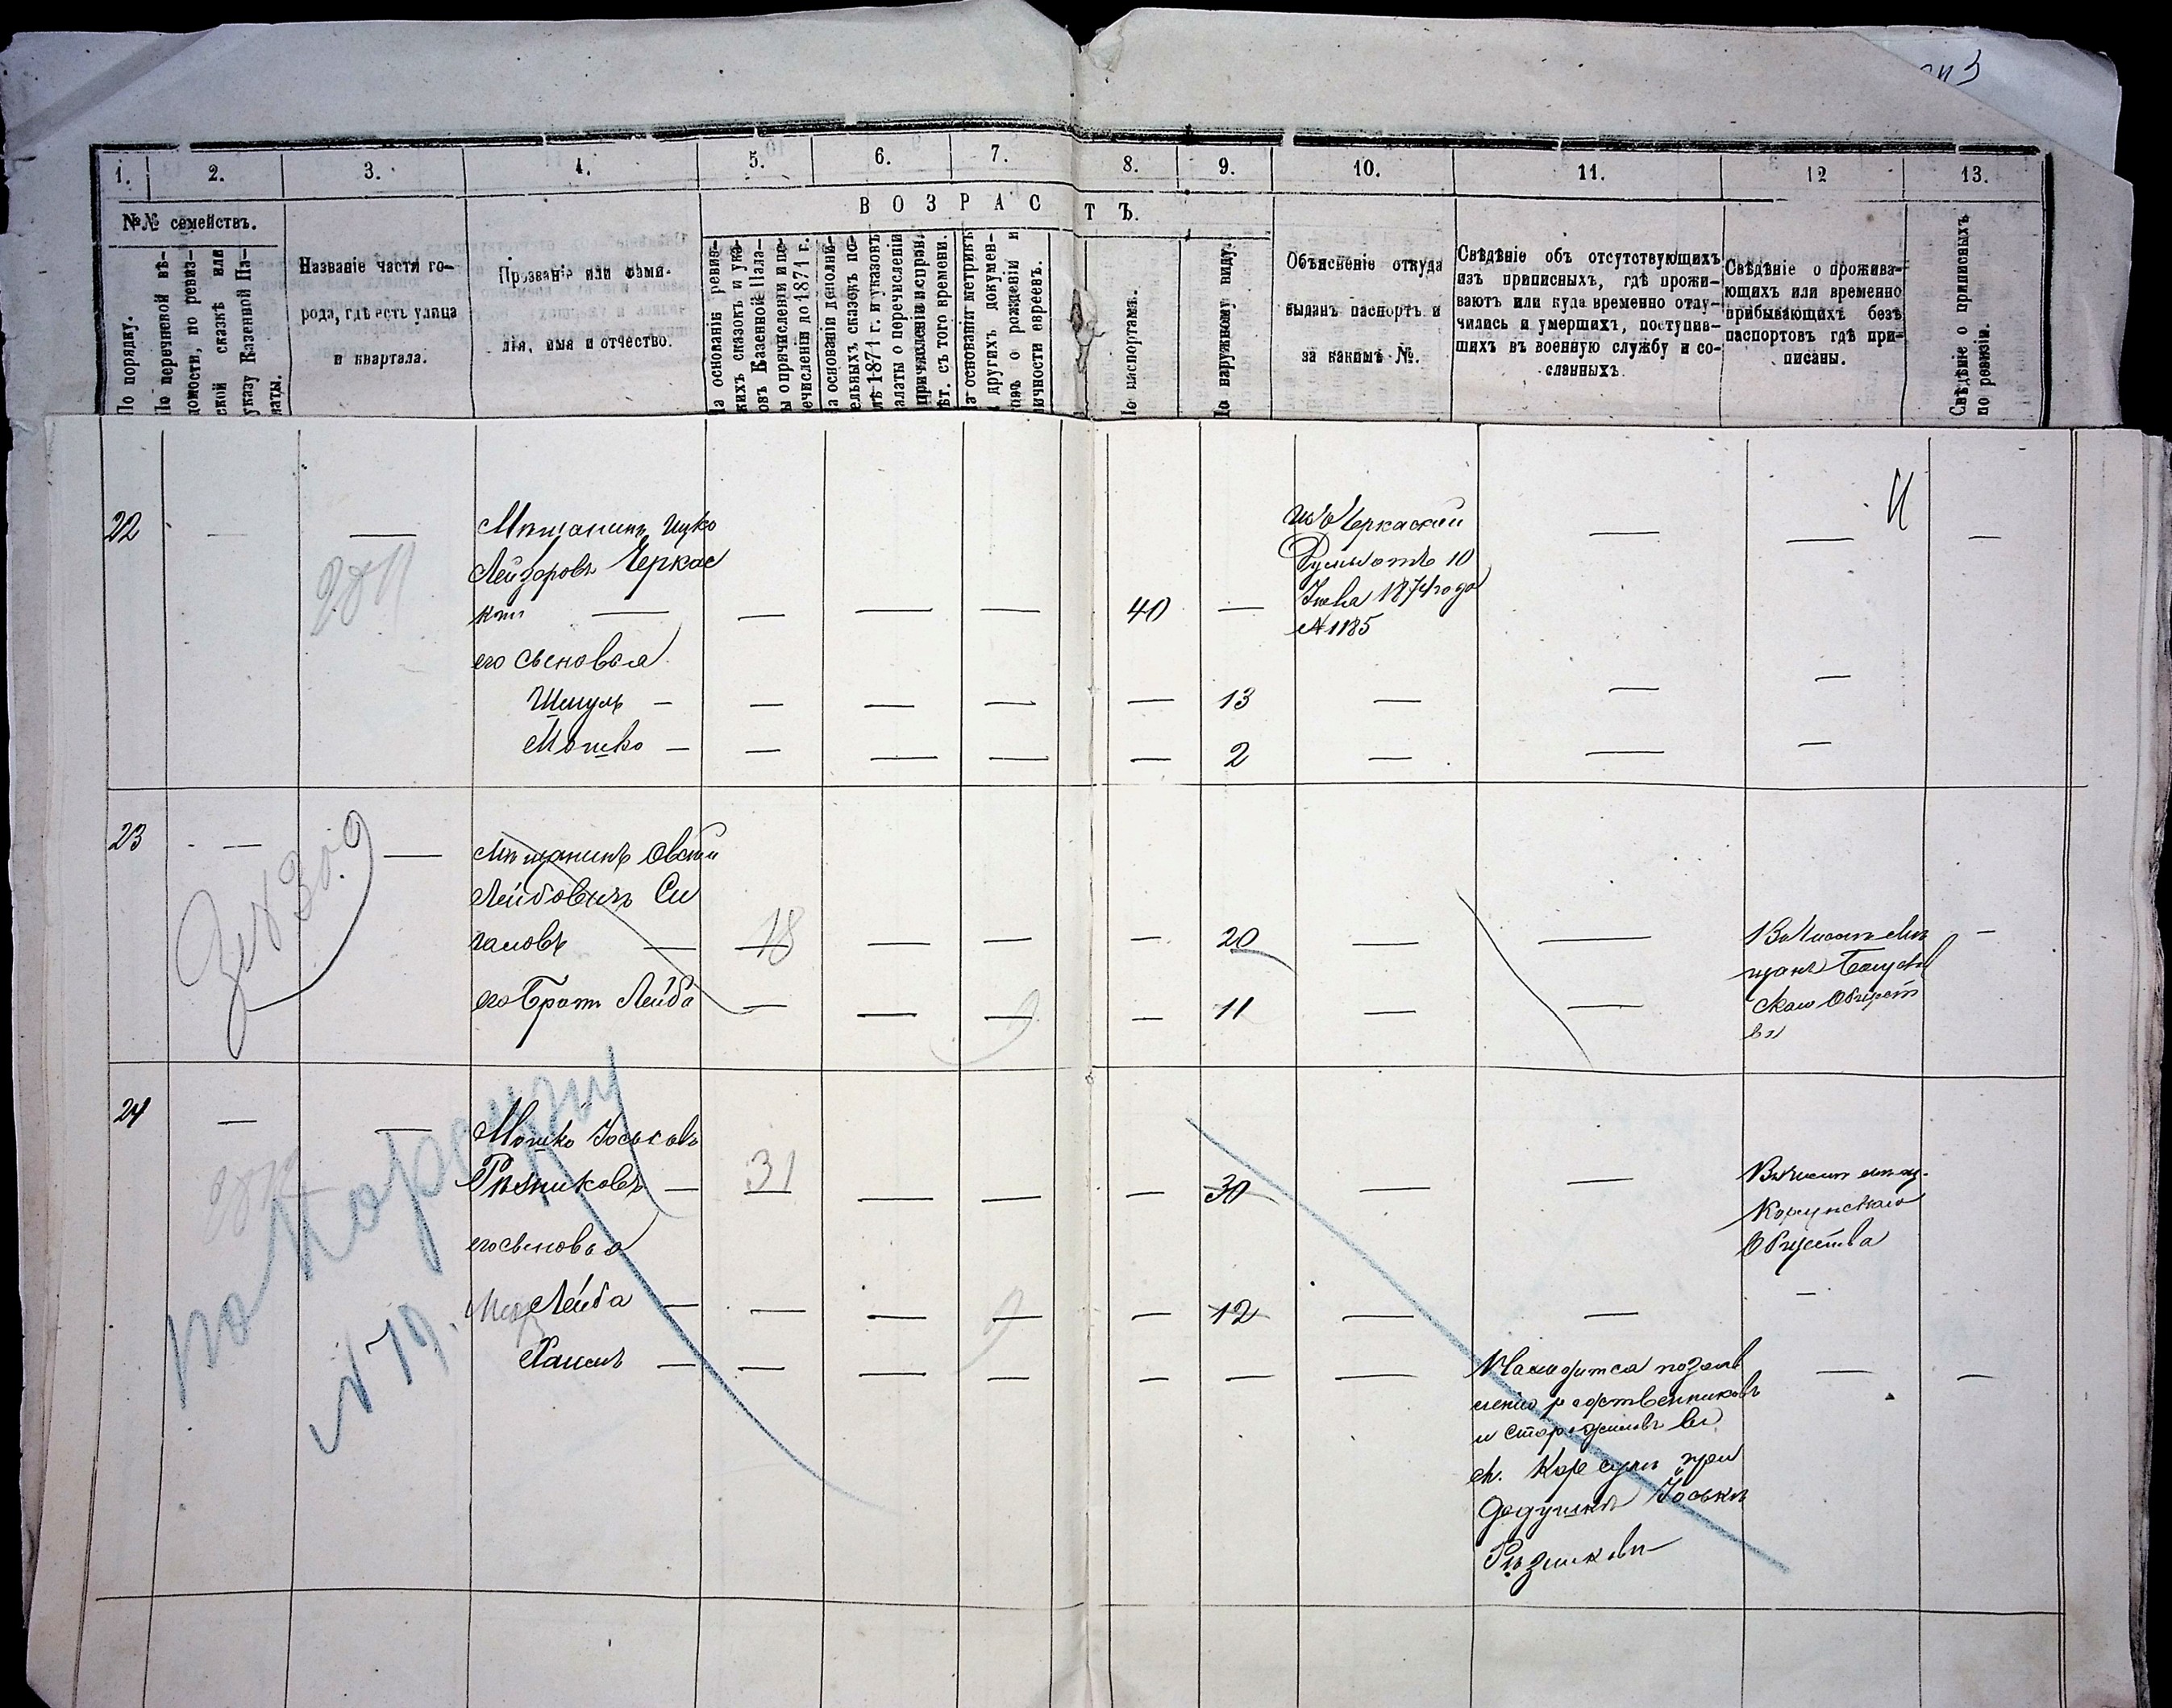 1. 2. 3. 4. 5. 6. 7. 8. 9. 10. 11. 12 13.
№№ семействъ.
В О З Р А С Т Ъ.
По порядку.
По перечневой вѣ-
домости, по ревиз-
ской сказкѣ или
указу Казенной Па-
латы.
Названіе части го-
рода, гдѣ есть улица
и квартала.
Прозваніе или фами-
лія, имя и отчество.
На основаніи ревиз-
скихъ сказокъ и ука-
зовъ Казенной Пала-
ты о причисленіи и пе-
речисленіи до 1871 г.
На основаніи дополни-
тельныхъ сказокъ по-
слѣ 1871 г. и указовъ
палаты о перечисленіи
причисленіи и исправ.
лѣт. съ того времени.
На основаніи метрикъ
и другихъ докумен-
товъ о рожденіи и
личности евреевъ.
По паспортамъ.
По наружному виду.
Объясненіе откуда
выданъ паспортъ и
за какимъ №.
Свѣдѣніе объ отсутствующихъ
изъ приписныхъ, гдѣ прожи-
ваютъ или куда временно отлу-
чились и умершихъ, поступив-
шихъ въ военную службу и со-
сланныхъ.
Свѣдѣніе о прожива-
ющихъ или временно
прибывающихъ безъ
паспортовъ гдѣ при-
писаны.
Свѣдѣніе о приписныхъ
по ревизіи.
22 — — Мѣщанинъ Ицко
Лейзеровъ Черкас
кій — — — — 40 —
изъ Черкаской
Думы отъ 10
Іюня 1874 года
№ 1185
— — —
его сыновья
Шмуль — — — — — 13 — — —
Мошко — — — — — 2 — — —
23 — — Мѣщанинъ Овсей
Лейбовичъ Си
галовъ — 18 — — — 20 — —
его братъ Лейба — — — 9 — 11 — —
скаго Общест
ва
24 — — Мошко Іоськовъ
Рѣзниковъ — 31 — — — 30 — —
Корсунскаго
Общества
его сыновья
Лейба — — — — 9 — 12 — — —
Хаимъ — — — — — — —
Находится по заяв
ленію родственниковъ
и сторожиловъ въ
м. Корсунѣ при
дедушкѣ Іоськѣ
Рѣзниковѣ
— —
по Корсуну
№ 79.